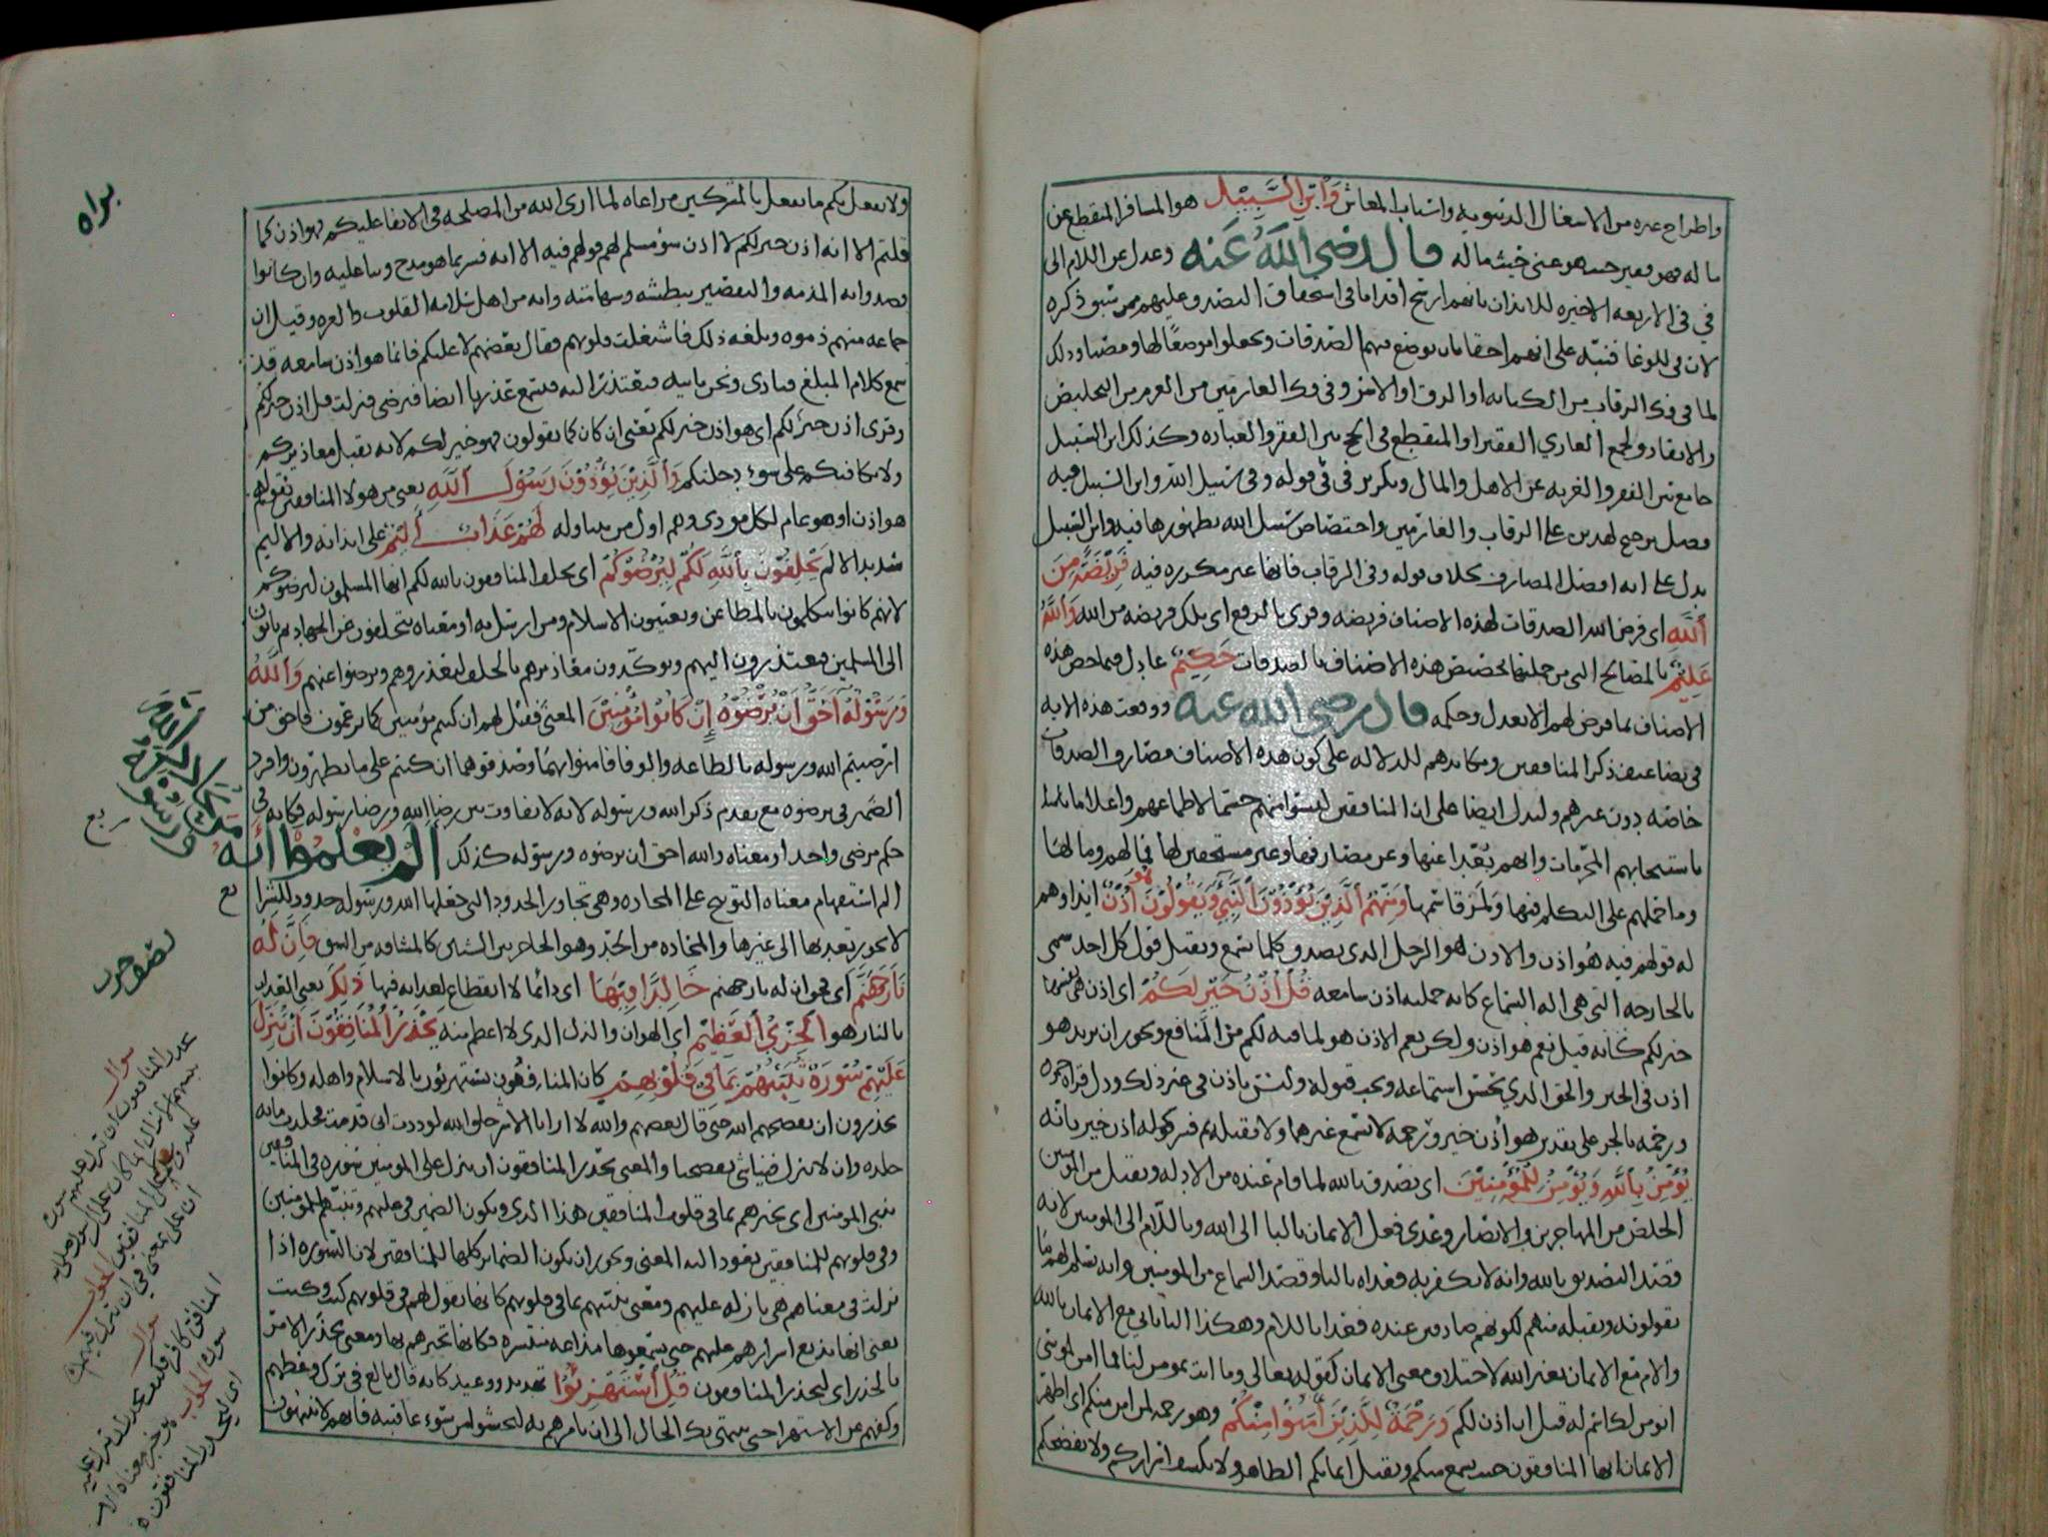 واطراح غيره من الاشغال الدنيويه واسباب المعاش وَابْنِ السَّبِيْلِ هو المسافر المنقطع عن
ماله فهو فقير حيث هو غني حيث ماله قال رضي الله عنه وعدل عن اللام الى
في في الاربعه الاخيره للايذان بانهم ارسخ اقداما في استحقاق التصدق عليهم ممن سبق ذكره
لان في للوعا فنبّه على انهم احقا بان توضع فيهم الصدقات ويجعلوا موضعًا لها ومصبا وذلك
لما في فك الرقاب من الكتابه او الرق او الاسر وفي فك الغارمين من الغرم من التخليص
والانقاذ ولجمع الغازي الفقير او المنقطع في الحج بين الفقر والعباده وكذلك ابن السبيل
جامع بين الفقر والغربه عن الاهل والمال وتكرير في في قوله وفي سبيل الله وابن السبيل فيه
فضل ترجيح لهذين على الرقاب والغارمين واختصاص سبيل الله
يدل على انه افضل المصارف بخلاف قوله وفي الرقاب فانها غير مكرره فيه فَرِيْضَةً مِنَ
اللَّهِ اي فرض الله الصدقات لهذه الاصناف فريضه وقرى بالرفع اي تلك فريضه من الله وَاللَّهُ
عَلِيْمٌ بالمصالح التي من جملتها تخصيص هذه الاصناف بالصدقات حَكِيْمٌ عادل فيما خص هذه
الاصناف بما فرض لهم الا بعدل وحكمه قال رضي الله عنه ووقعت هذه الايه
في تضاعيف ذكر المنافقين ومكايدهم للدلاله على كون هذه الاصناف مصارف الصدقات
خاصه دون غيرهم وليدل ايضا على ان المنافقين ليسوا منهم حسما لاطماعهم واعلاما
باستيجابهم المحرمات وانهم بُعَدا عنها وعن مصارفها وغير مستحقين لها فما لهم وما لها
وما حملهم على التكلم فيها ولمز قاسمها وَمِنْهُمُ الَّذِيْنَ يُؤْذُوْنَ النَّبِيَّ وَيَقُوْلُوْنَ هُوَ أُذُنٌ ايذاوهم
له قولهم فيه هو اذن والاذن هو الرجل الذي يصدق كلما يسمع ويقبل قول كل احد سمى
بالجارحه التي هي اله السماع كان جملته اذن سامعه قُلْ أُذُنُ خَيْرٍ لَكُمْ اي اذن هي
خير لكم كانه قيل نعم هو اذن ولكن نعم الاذن هو لما فيه لكم من المنافع ويجوز ان يريد هو
اذن في الخير والحق الذي يحسن استماعه ويجب قبوله وليس باذن في غير ذلك ودل قراه حمزه
ورحمه بالجر على تقدير هو أذن خير ورحمه لا يسمع غيرهما ولا يقبله ثم فسر كونه اذن خير بانه
يُؤْمِنُ بِاللَّهِ وَيُؤْمِنُ لِلْمُؤْمِنِيْنَ اي يصدق بالله لما قام عنده من الادله ويقبل من المومنين
الخلص من المهاجرين والانصار وعدى فعل الايمان بالبا الى الله وباللام الى المومنين لانه
قصد التصديق بالله وانه لا يكفر به فعداه بالبا وقصد السماع من المومنين وانه يسلم لهم ما
يقولونه ويقبله منهم لكونهم صادقين عنده فعدا باللام وهكذا الباياتي مع الايمان بالله
واللام مع الايمان بغير الله لاختلاف معنى الايمان كقوله تعالى وما انت بمومن لنا فما امن لموسى
انومن لك امنتم له قبل ان اذن لكم وَرَحْمَةٌ لِلَّذِيْنَ آمَنُوْا مِنْكُمْ وهو رحمه لمن امن منكم اي اظهر
الايمان ايها المنافقون حيث يسمع منكم ويقبل ايمانكم الظاهر ولا يكشف اسراركم ولا يفضحكم
ولا يفعل بكم ما يفعل بالمشركين مراعاه لما اري الله من المصلحه في الابقا عليكم فهو اذن كما
قلتم الا انه اذن خير لكم لا اذن سوء مسلم لهم قولهم فيه الا انه فسر بما هو مدح وثنا عليه وان كانوا
قصدوا به المذمه والتقصير بفطنته وشهامته وانه من اهل سلامه القلوب والغره وقيل ان
جماعه منهم ذموه وبلغه ذلك فاشتغلت قلوبهم فقال بعضهم لا عليكم فانما هو اذن سامعه قد
سمع كلام المبلغ فتاذى ونحن ناتيه فنعتذر اليه فيسمع عذرنا ايضا فيرضى فنزلت قل اذن خير لكم
وقرى اذن خيرٌ لكم اي هو اذن خير لكم يعني ان كان كما يقولون فهو خير لكم لانه يقبل معاذيركم
ولا يكافيكم على سوء دخلتكم وَالَّذِيْنَ يُؤْذُوْنَ رَسُوْلَ اللَّهِ يعني من هولا المنافقين بقولهم
هو اذن او هو عام لكل موذي وهم اول من يتناوله لَهُمْ عَذَابٌ أَلِيْمٌ على ايذائه والاليم
شديد الالم يَحْلِفُوْنَ بِاللَّهِ لَكُمْ لِيُرْضُوْكُمْ اي يحلف المنافقون بالله لكم ايها المسلمون ليرضوكم
لانهم كانوا يتكلمون بالمطاعن ويعيبون الاسلام ومن ارسل به او معناه يتخلفون عن الجهاد ثم ياتون
الى المسلمين فيعتذرون اليهم ويوكّدون معاذيرهم بالحلف ليعذروهم ويرضوا عنهم وَاللَّهُ
وَرَسُوْلُهُ أَحَقُّ أَنْ يُرْضُوْهُ إِنْ كَانُوْا مُؤْمِنِيْنَ المعنى فقيل لهم ان كنتم مؤمنين كما تزعمون فاحق من
ارضيتم الله ورسوله بالطاعه والوفا
الضمير في يرضوه مع تقدم ذكر الله ورسوله لانه لا تفاوت بين رضا الله ورضا رسوله فكانه في
حكم مرضي واحد او معناه والله احق ان يرضوه ورسوله كذلك أَلَمْ يَعْلَمُوْا أَنَّهُ
الم استفهام معناه التوبيخ على المحاده وهي تجاوز الحدود التي جعلها الله ورسوله حدودا للشرا
لا يجوز تعديها الى غيرها والمحاده من الحد وهو الحاجز بين الشيين كالمشاقه من الشق فَإِنَّ لَهُ
نَارَ جَهَنَّمَ اي فحق ان له نار جهنم خَالِدًا فِيْهَا اي دائما لا انقطاع لعذابه فيها ذَلِكَ يعني العذاب
بالنار هو الْخِزْيُ الْعَظِيْمُ اي الهوان والذل الذي لا اعظم منه يَحْذَرُ الْمُنَافِقُوْنَ أَنْ تُنَزَّلَ
عَلَيْهِمْ سُوْرَةٌ تُنَبِّئُهُمْ بِمَا فِي قُلُوْبِهِمْ كان المنافقون يستهزئون بالاسلام واهله وكانوا
يحذرون ان يفضحهم الله حتى قال بعضهم والله لا ارانا الا شر خلق الله لوددت اني قدمت فجلدت مايه
جلده وان لا ينزل فينا شي يفضحنا والمعنى يحذر المنافقون ان ينزل على المومنين سوره في المنافقين
تنبي المومنين اي تخبرهم بما في قلوب المنافقين هذا الذي ويكون الضمير في عليهم وتنبيهم للمومنين
وفي قلوبهم للمنافقين يقود اليه المعنى ويجوز ان يكون الضماير كلها للمنافقين لان السوره اذا
نزلت في معناهم هي نازله عليهم ومعنى تنبيهم بما في قلوبهم كانها تقول لهم في قلوبكم كيت وكيت
يعني انها تذيع اسرارهم عليهم حتى يسمعوها مذاعه منتشره فكانها تخبرهم بها ومعنى يحذر الامر
بالحذر اي ليحذر المنافقون قُلِ اسْتَهْزِئُوْا تهديد ووعيد كانه قال بالغ في
وكفهم عن الاستهزا حتى ينتهي بك الحال الى ان تامرهم به ليخشوا من سوء عاقبته فانهم لا ينتهون
براه
مَنْ يُحَادِدِ اللَّهَ
وَرَسُوْلَهُ
ربع
نصف حزب
سوال
يحذر المنافقون ان تنزل عليهم سورت
الجواب
ان على بمعنى في اي تنزل فيهم
سوال
المنافق كافر فكيف يحذر
الجواب هو خبر معناه الامر
اي ليحذر المنافقون